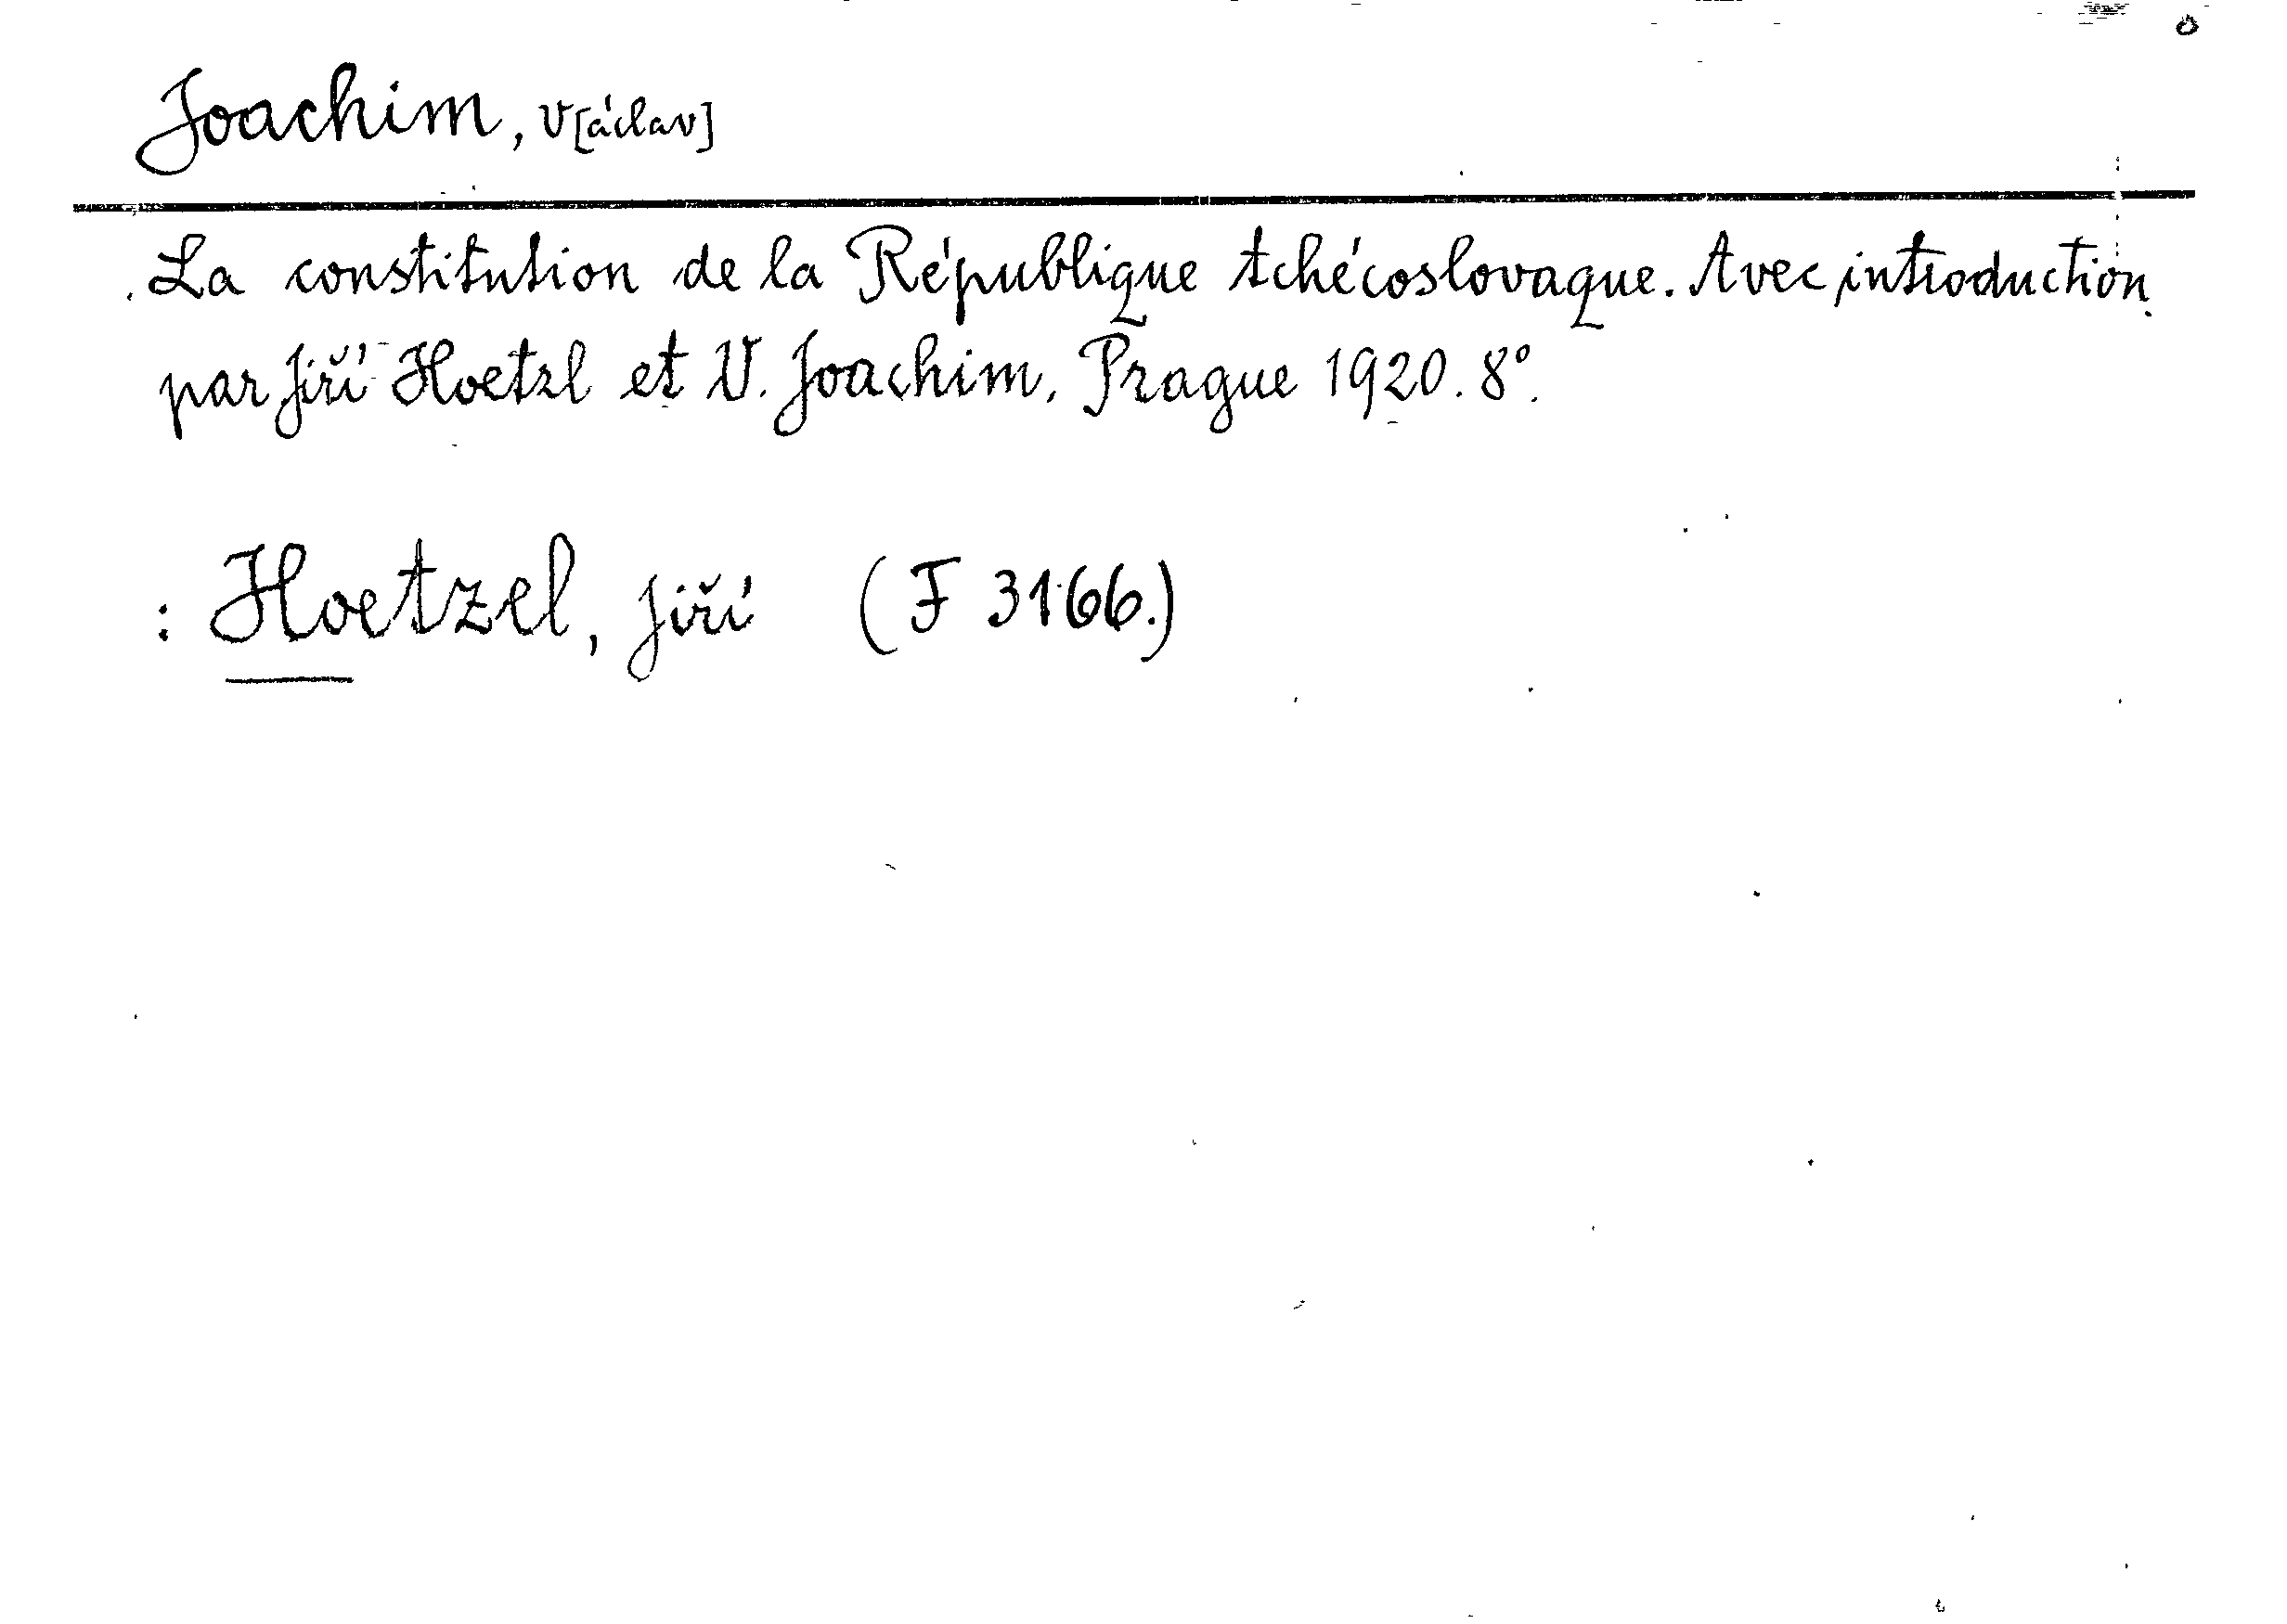 Joachim, V[áclav]
La constitution de la République tchécoslovaque. Avec introduction
par Jiří Hoetzl et V. Joachim. Prague 1920. 8°.
: Hoetzel, Jiří (F 3166.)